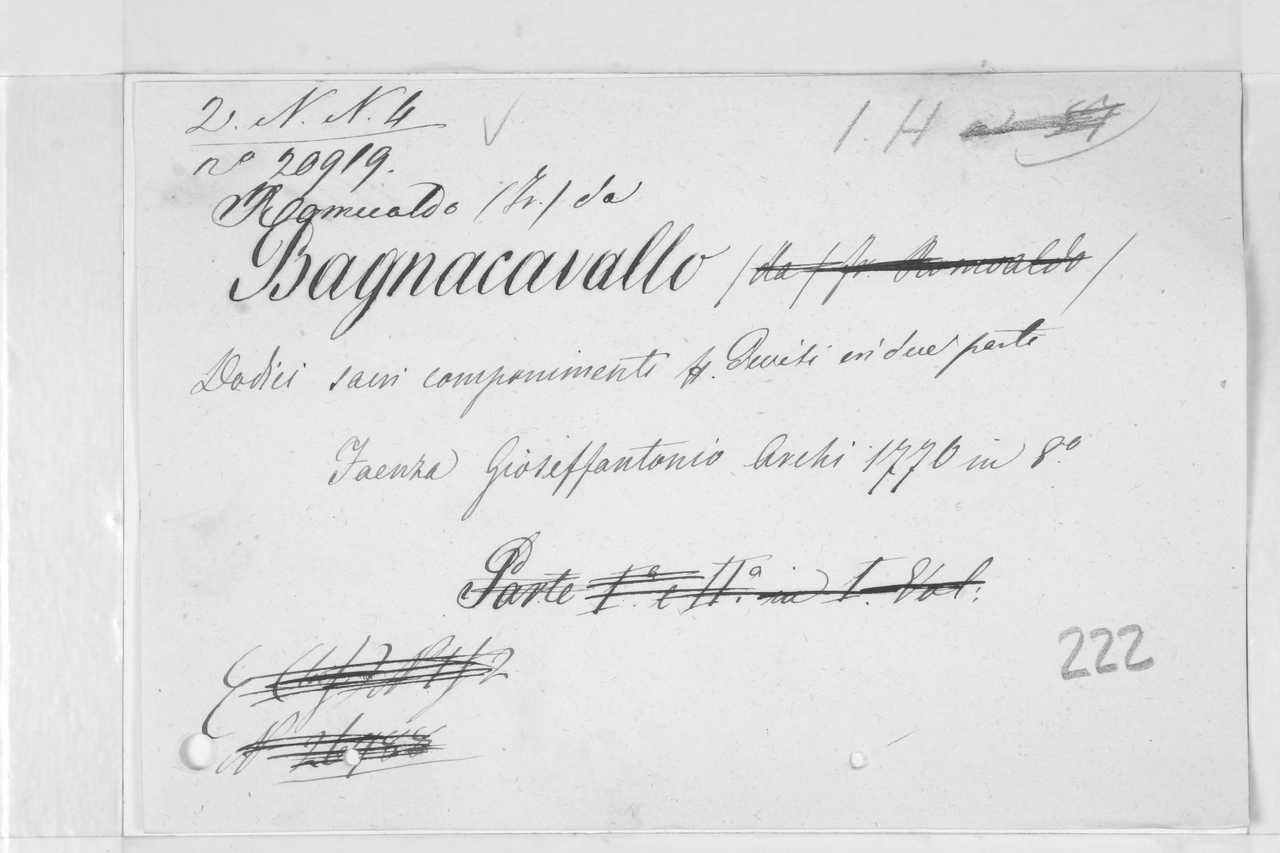 2. N. N. 4
1. H
nº 20919.
Romualdo (Fr.) da
Bagnacavallo / (da) fr. Romualdo /
Dodici sacri componimenti divisi in due parti
Faenza Gioseffantonio Archi 1770 in 8.º
Parte I.ª e II.ª in I. Vol:
Nº 26988
222